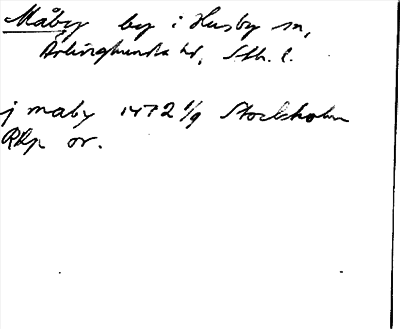 Måby by i Husby sn,
Ärlinghundra hd, Sth. l.
j maby 1472 1/9 Stockholm
RAp or.